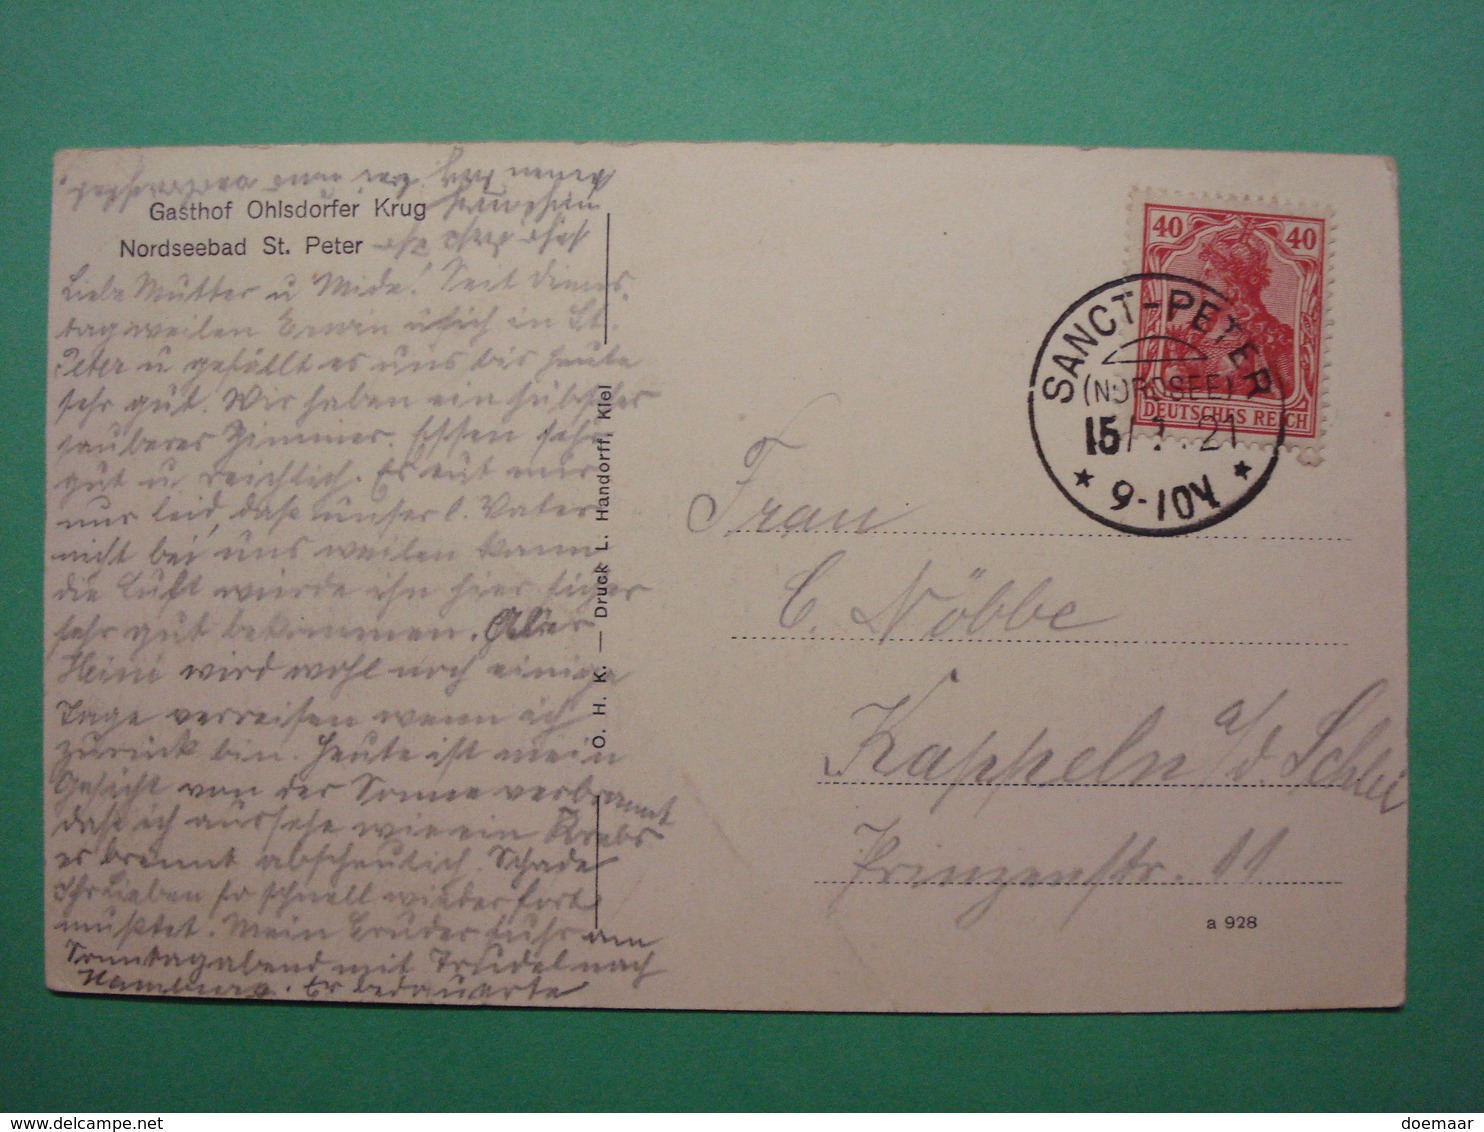 Gasthof Ohlsdorfer Krug
Nordseebad St. Peter
Liebe Mutter u Mida! Seit Diens-
tag weilen Erwin u ich in St.
Peter u gefällt es uns bis heute
sehr gut. Wir haben ein hübsches
sauberes Zimmer. Essen sehr
gut u reichlich. Es tut mir
nur leid, daß unser l. Vater
nicht bei uns weilen kann
die Luft würde ihn hier sicher
sehr gut bekommen. Aber
Heini wird wohl noch einige
Tage verreisen wenn ich
zurück bin. Heute ist mein
Gesicht von der Sonne verbrannt
daß ich aussehe wie ein Krebs
es brennt abscheulich. Schade
Ihr Lieben so schnell wieder fort
mußtet. Mein Bruder fuhr am
Sonntagabend mit Trudel nach
Hamburg. Er bedauerte
sehr daß Ihr
O. H. K. — Druck L. Handorff, Kiel
40 40
DEUTSCHES REICH
SANCT-PETER
(NORDSEE)
15 21
9-10V
Frau
C. Nöbbe
Kappeln a/d. Schlei
Prinzenstr. 11
a 928
doemaar